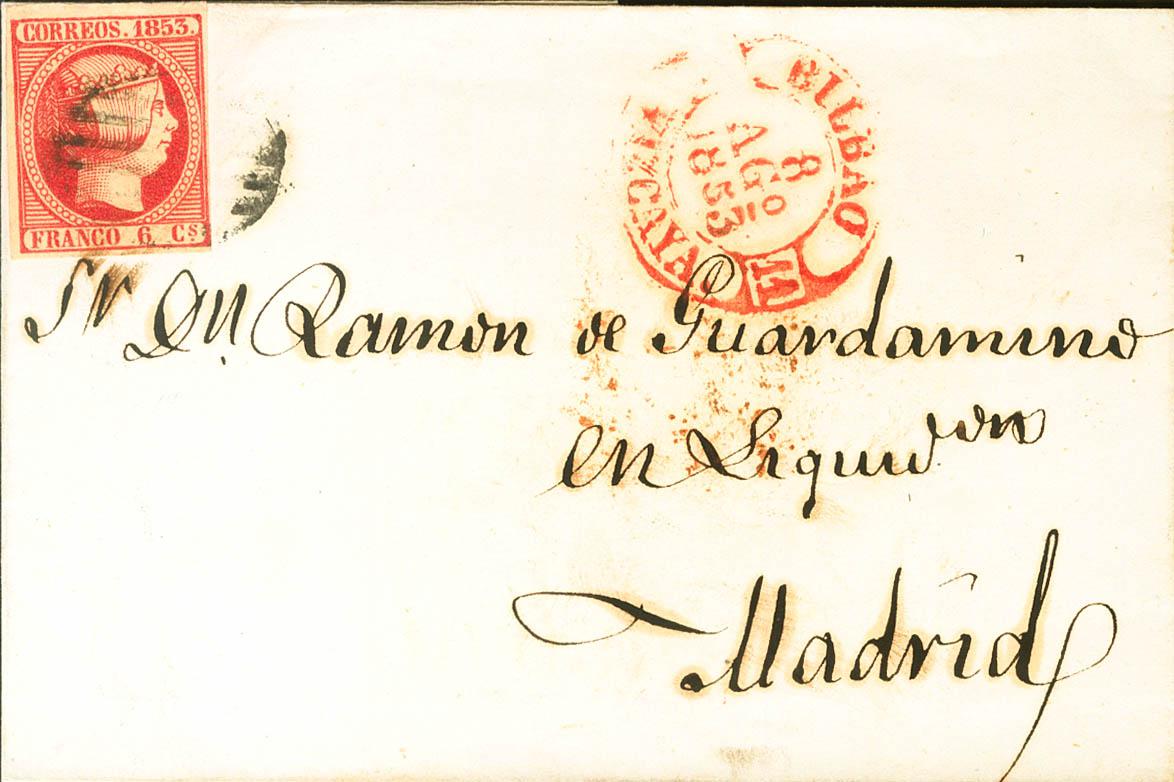 CORREOS. 1853.
FRANCO 6 Cs
BILBAO
8
AGO
1853
VIZCAYA
Sr Dn Ramon de Guardamino
en Liquidon
Madrid